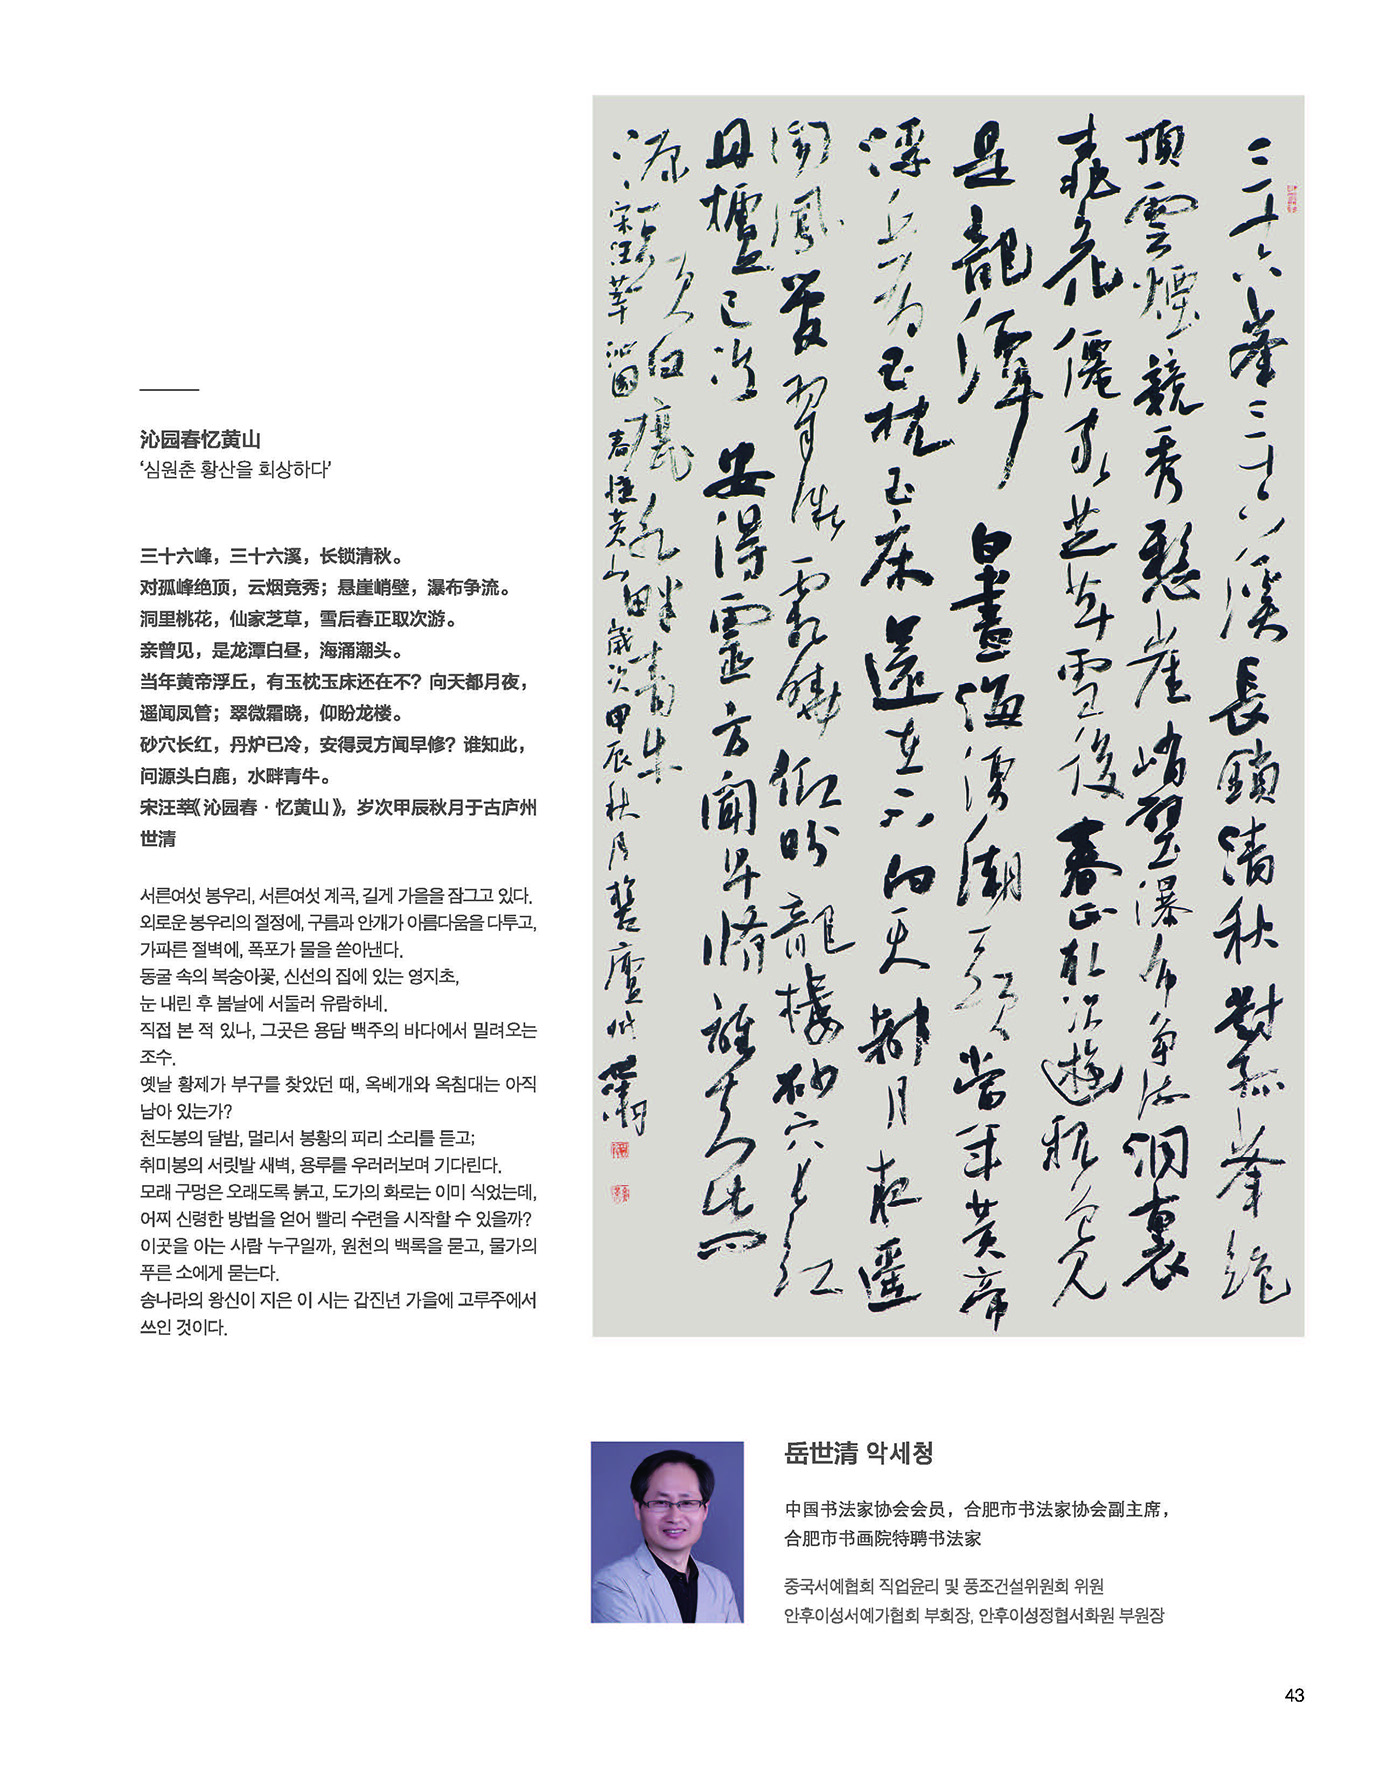 沁园春忆黄山
‘심원춘 황산을 회상하다’
三十六峰，三十六溪，长锁清秋。
对孤峰绝顶，云烟竞秀；悬崖峭壁，瀑布争流。
洞里桃花，仙家芝草，雪后春正取次游。
亲曾见，是龙潭白昼，海涌潮头。
当年黄帝浮丘，有玉枕玉床还在不？向天都月夜，
遥闻凤管；翠微霜晓，仰盼龙楼。
砂穴长红，丹炉已冷，安得灵方闻早修？谁知此，
问源头白鹿，水畔青牛。
宋汪莘《沁园春·忆黄山》，岁次甲辰秋月于古庐州
世清
서른여섯 봉우리, 서른여섯 계곡, 길게 가을을 잠그고 있다.
외로운 봉우리의 절정에, 구름과 안개가 아름다움을 다투고,
가파른 절벽에, 폭포가 물을 쏟아낸다.
동굴 속의 복숭아꽃, 신선의 집에 있는 영지초,
눈 내린 후 봄날에 서둘러 유람하네.
직접 본 적 있나, 그곳은 용담 백주의 바다에서 밀려오는
조수.
옛날 황제가 부구를 찾았던 때, 옥베개와 옥침대는 아직
남아 있는가?
천도봉의 달밤, 멀리서 봉황의 피리 소리를 듣고;
취미봉의 서릿발 새벽, 용루를 우러러보며 기다린다.
모래 구멍은 오래도록 붉고, 도가의 화로는 이미 식었는데,
어찌 신령한 방법을 얻어 빨리 수련을 시작할 수 있을까?
이곳을 아는 사람 누구일까, 원천의 백록을 묻고, 물가의
푸른 소에게 묻는다.
송나라의 왕신이 지은 이 시는 갑진년 가을에 고루주에서
쓰인 것이다.
三十六峯三十六溪長鎖清秋對孤峯絶
頂雲煙競秀懸崖峭壁瀑布争流洞裏
桃花僊家芝草雪後春正取次遊親曾見
是龍潭白晝海湧潮頭當年黄帝
浮丘有玉枕玉床還在不向天都月夜遥
聞鳳管翠微霜曉仰盼龍樓砂穴长红
丹爐已冷安得靈方聞早脩誰知此問
源頭白鹿水畔青牛
宋汪莘沁園春憶黄山歲次甲辰秋月於廬州世清
岳世清 악세청
中国书法家协会会员，合肥市书法家协会副主席，
合肥市书画院特聘书法家
중국서예협회 직업윤리 및 풍조건설위원회 위원
안후이성서예가협회 부회장, 안후이성정협서화원 부원장
43